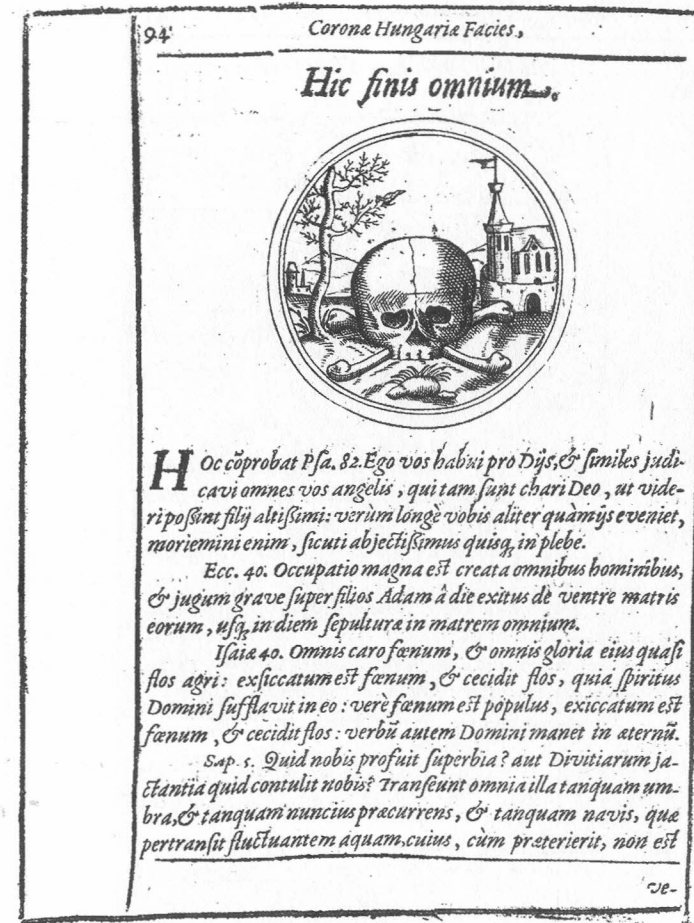 94
Coronæ Hungariæ Facies,
Hic finis omnium.
HOc cõprobat Psa. 82. Ego vos habui pro Dijs, & similes judi-
cavi omnes vos angelis, qui tam sunt chari Deo, ut vide-
ri possint filij altissimi: verùm longè vobis aliter quàm ijs eveniet,
moriemini enim, sicuti abjectissimus quisq; in plebe.
Ecc. 40. Occupatio magna est creata omnibus hominibus,
& jugum grave super filios Adam â die exitus de ventre matris
eorum, usq; in diem sepulturæ in matrem omnium.
Isaiæ 40. Omnis caro fœnum, & omnis gloria eius quasi
flos agri: exsiccatum est fœnum, & cecidit flos, quia spiritus
Domini sufflavit in eo: verè fœnum est populus, exiccatum est
fœnum, & cecidit flos: verbũ autem Domini manet in æternũ.
Sap. 5. Quid nobis profuit superbia? aut Divitiarum ja-
ctantia quid contulit nobis? Transeunt omnia illa tanquam um-
bra, & tanquam nuncius præcurrens, & tanquam navis, quæ
pertransit fluctuantem aquam, cuius, cùm præterierit, non est
ve-